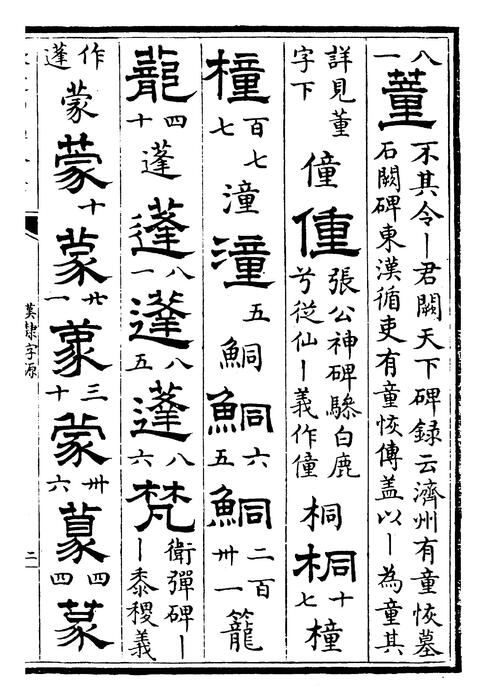 八一 蕫 不其令丨君闕天下碑録云濟州有童恢墓
石闕碑東漢循吏有童恢傳盖以丨為童其
詳見董字下 僮 偅 張公神碑驂白鹿
兮從仙丨義作僮 桐 桐 十七 橦
橦 百七七 潼 潼 五 鮦 鮦 六五 鮦 二百卅一 籠
蘢 四十 蓬 蓬 八一 蓬 八五 蓬 八六 梵 衛彈碑丨
丨黍稷義
作蓬 蒙 蒙 十 蒙 廿一 蒙 三十 蒙 卅六 蒙 四四 蒙
漢隸字源
二